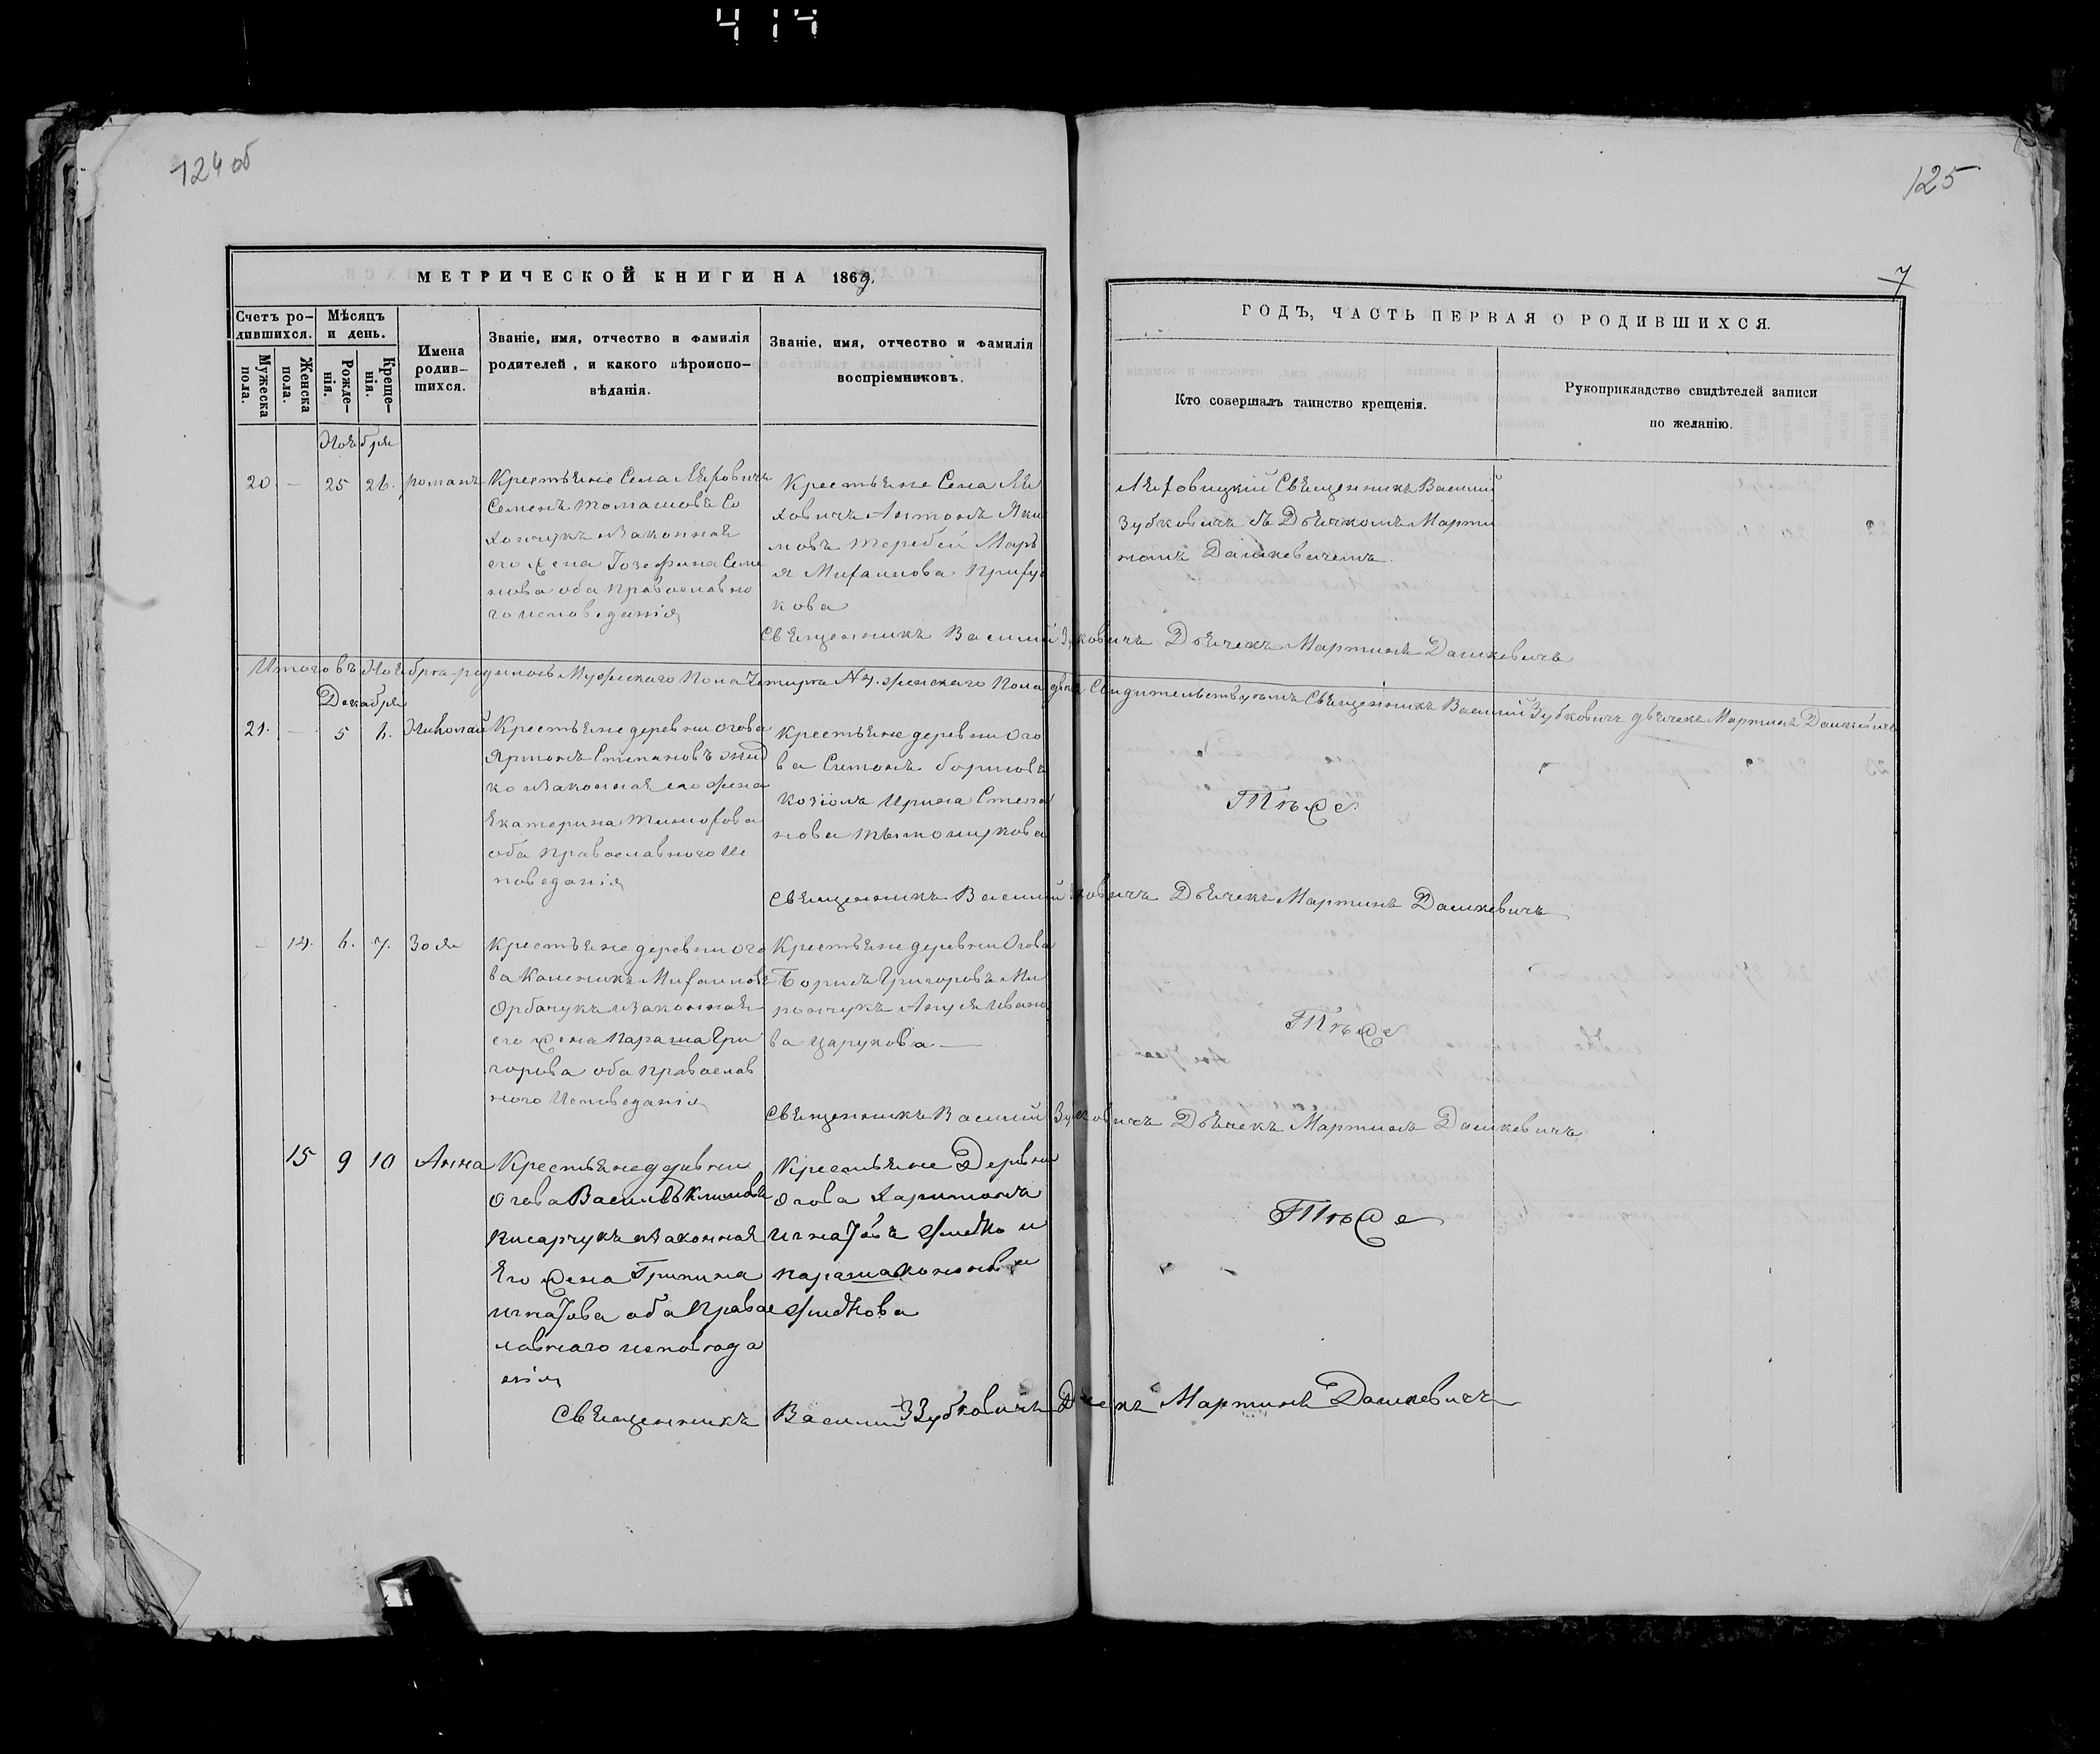 414
124 об
125
7
МЕТРИЧЕСКОЙ КНИГИ НА 1869.
ГОДЪ, ЧАСТЬ ПЕРВАЯ О РОДИВШИХСЯ.
Счетъ ро-
дившихся.
Мужеска
пола.
Женска
пола.
Мѣсяцъ
и день.
Рожде-
нія.
Креще-
нія.
Имена
родив-
шихся.
Званіе, имя, отчество и фамилія
родителей, и какого вѣроиспо-
вѣданія.
Званіе, имя, отчество и фамилія
воспріемниковъ.
Кто совершалъ таинство крещенія.
Рукоприкладство свидѣтелей записи
по желанію.
Ноября
20 — 25 26. романъ
Крестьяне Села Ляховичъ
Семенъ Томашовъ Со
хончукъ изаконная
его жена Іозефина Семе
нова оба православно
го исповеданія
Крестьяне Села Ля
ховичъ Антонъ Яки
мовъ теребей Марь
я Михаилова
кова
Ляховицкій Священникъ Василий
Зубковичъ съ Дьячкомъ Марти
номъ Дашкевичемъ.
Священникъ Василий Зубковичъ Дьячекъ Мартинъ Дашкевичъ
Итого въ Ноябра родилось Мужескаго Пола Четыри №4. женскаго Пола Свидительствуемъ Священникъ Василий Зубковичъ дьячекъ Мартинъ Дашкевичъ
Декабря
21. — 5 6. Николай
Крестьяне деревни огова
Ярмонъ Степановъ жид
ко изаконная его жена
Екатерина Тимофова
оба православного Ис
поведанія
крестьяне деревни Ого
ва Симонъ борисовъ
козіолъ Ирина Степа
нова
Тъже
Священникъ Василий Зубковичъ Дьячекъ Мартинъ Дашкевичъ
— 14. 6. 7. Зовя
крестьяне деревни ого
ва Каленикъ Михаиловъ
Орбачукъ изаконная
его жена Параша Гри
горева оба православ
ного Исповеданія
Крестьяне деревни Огова
Борисъ Григоровъ Ми
рончукъ Ивано
ва Царукова —
Тъже
Священникъ Василий Зубковичъ Дьячекъ Мартинъ Дашкевичъ
15 9 10 Анна
Крестьяне д
огова Василь Климовъ
писарчукъ изаконная
Его жена Грипина
игнатова оба Правос
лавнаго исповода
нія
Крестьяне Деревни
огова Харитонъ
игнатовъ жидко и
параша
жидкова
Тъже
Священникъ Василий Зубковичъ Дьячекъ Мартинъ Дашкевичъ